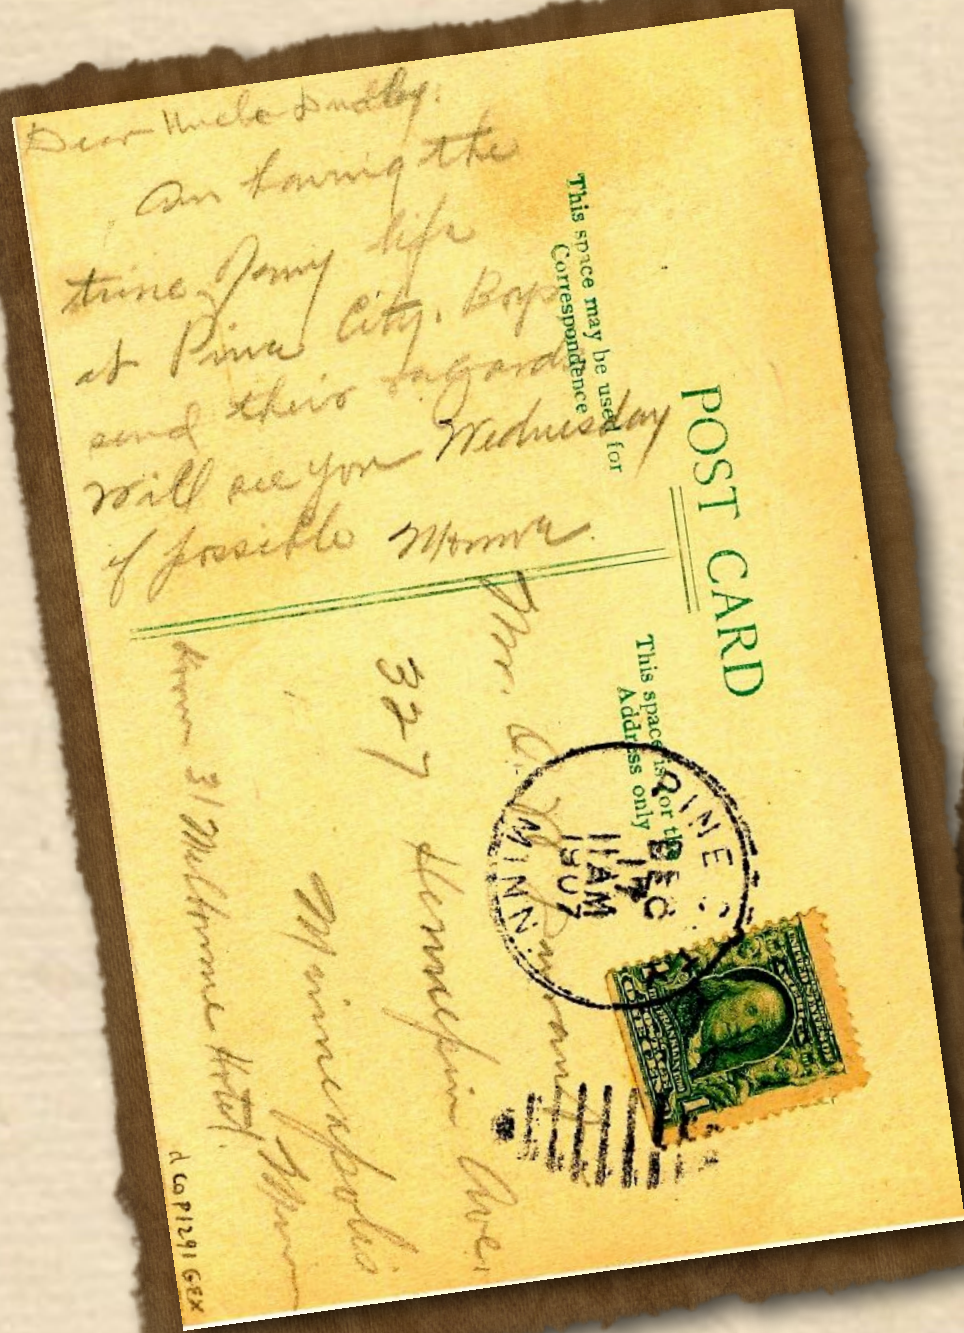 Dear Uncle Dudley.
Am having the
time of my life
at Pine City. Boys
send their regards
Will see you Wednesday
if possible
POST CARD
This space may be used for
Correspondence
This space is for the
Address only
PINE C
DEC
17
11 AM
1907
MINN.
Mr. C.
327 Hennepin Ave.
Minneapolis
Minn
Room 31 Milbourne Hotel